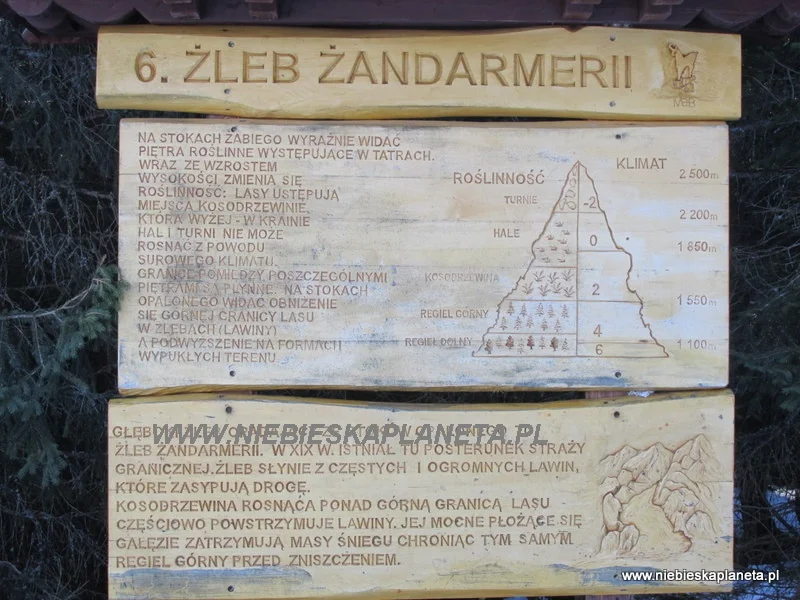 6. ŻLEB ŻANDARMERII
NA STOKACH ŻABIEGO WYRAŹNIE WIDAĆ
PIĘTRA ROŚLINNE WYSTĘPUJĄCE W TATRACH.
WRAZ ZE WZROSTEM
WYSOKOŚCI ZMIENIA SIĘ
ROŚLINNOŚĆ: LASY USTĘPUJĄ
MIEJSCA KOSODRZEWINIE,
KTÓRA WYŻEJ - W KRAINIE
HAL I TURNI NIE MOŻE
ROSNĄĆ Z POWODU
SUROWEGO KLIMATU.
GRANICE POMIĘDZY POSZCZEGÓLNYMI
PIĘTRAMI SĄ PŁYNNE. NA STOKACH
OPALONEGO WIDAĆ OBNIŻENIE
SIĘ GÓRNEJ GRANICY LASU
W ŻLEBACH (LAWINY)
A PODWYŻSZENIE NA FORMACH
WYPUKŁYCH TERENU
ROŚLINNOŚĆ
KLIMAT
2 500m
TURNIE
-2
2 200m
HALE
0
1 850m
KOSODRZEWINA
2
1 550m
REGIEL GÓRNY
4
REGIEL DOLNY
6
1 100m
WWW.NIEBIESKAPLANETA.PL
ŻLEB ŻANDARMERII. W XIX W. ISTNIAŁ TU POSTERUNEK STRAŻY
GRANICZNEJ. ŻLEB SŁYNIE Z CZĘSTYCH I OGROMNYCH LAWIN,
KTÓRE ZASYPUJĄ DROGĘ.
KOSODRZEWINA ROSNĄCA PONAD GÓRNĄ GRANICĄ LASU
CZĘŚCIOWO POWSTRZYMUJE LAWINY. JEJ MOCNE PŁOŻĄCE SIĘ
GAŁĘZIE ZATRZYMUJĄ MASY ŚNIEGU CHRONIĄC TYM SAMYM
REGIEL GÓRNY PRZED ZNISZCZENIEM.
www.niebieskaplaneta.pl